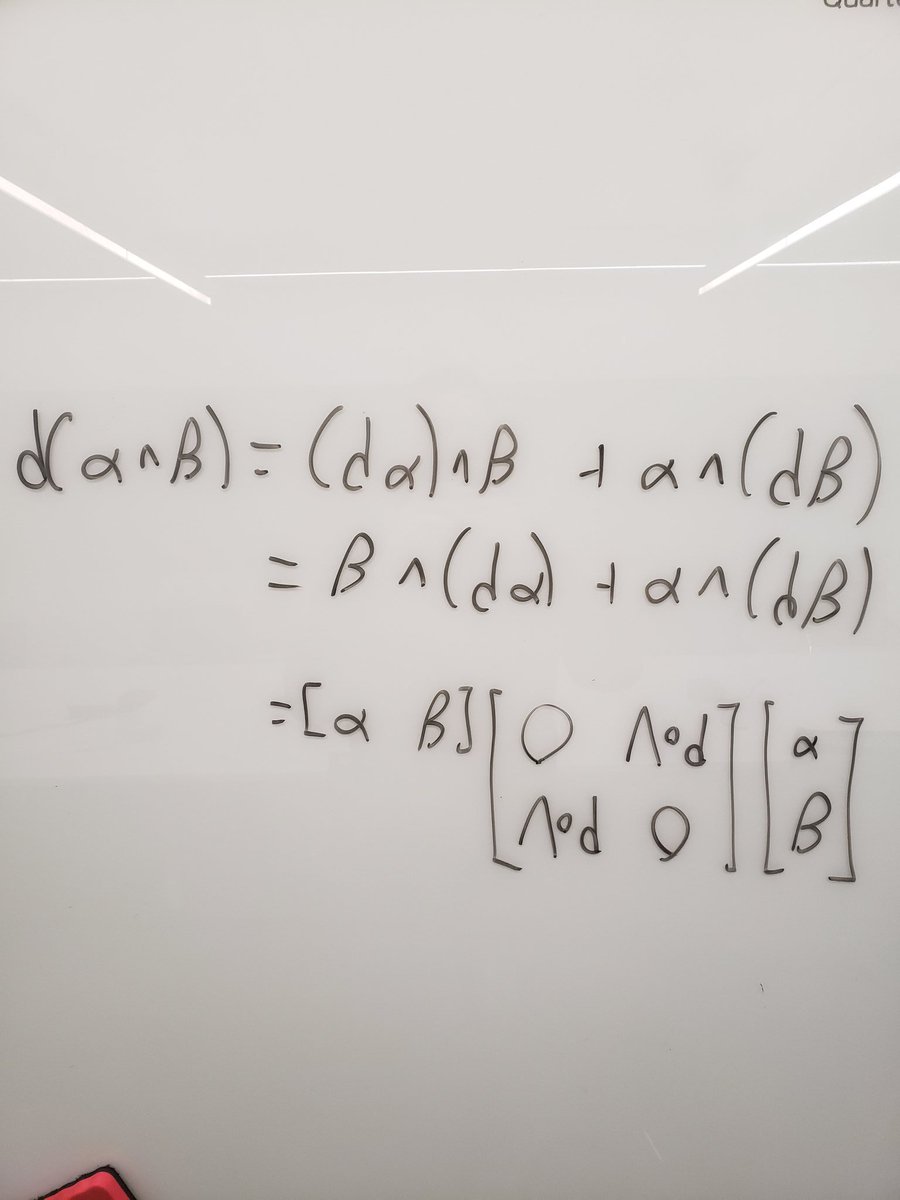 Quart
d(α∧β) = (dα)∧β + α∧(dβ)
= β∧(dα) + α∧(dβ)
= [α β] [0 ∧∘d; ∧∘d 0] [α; β]